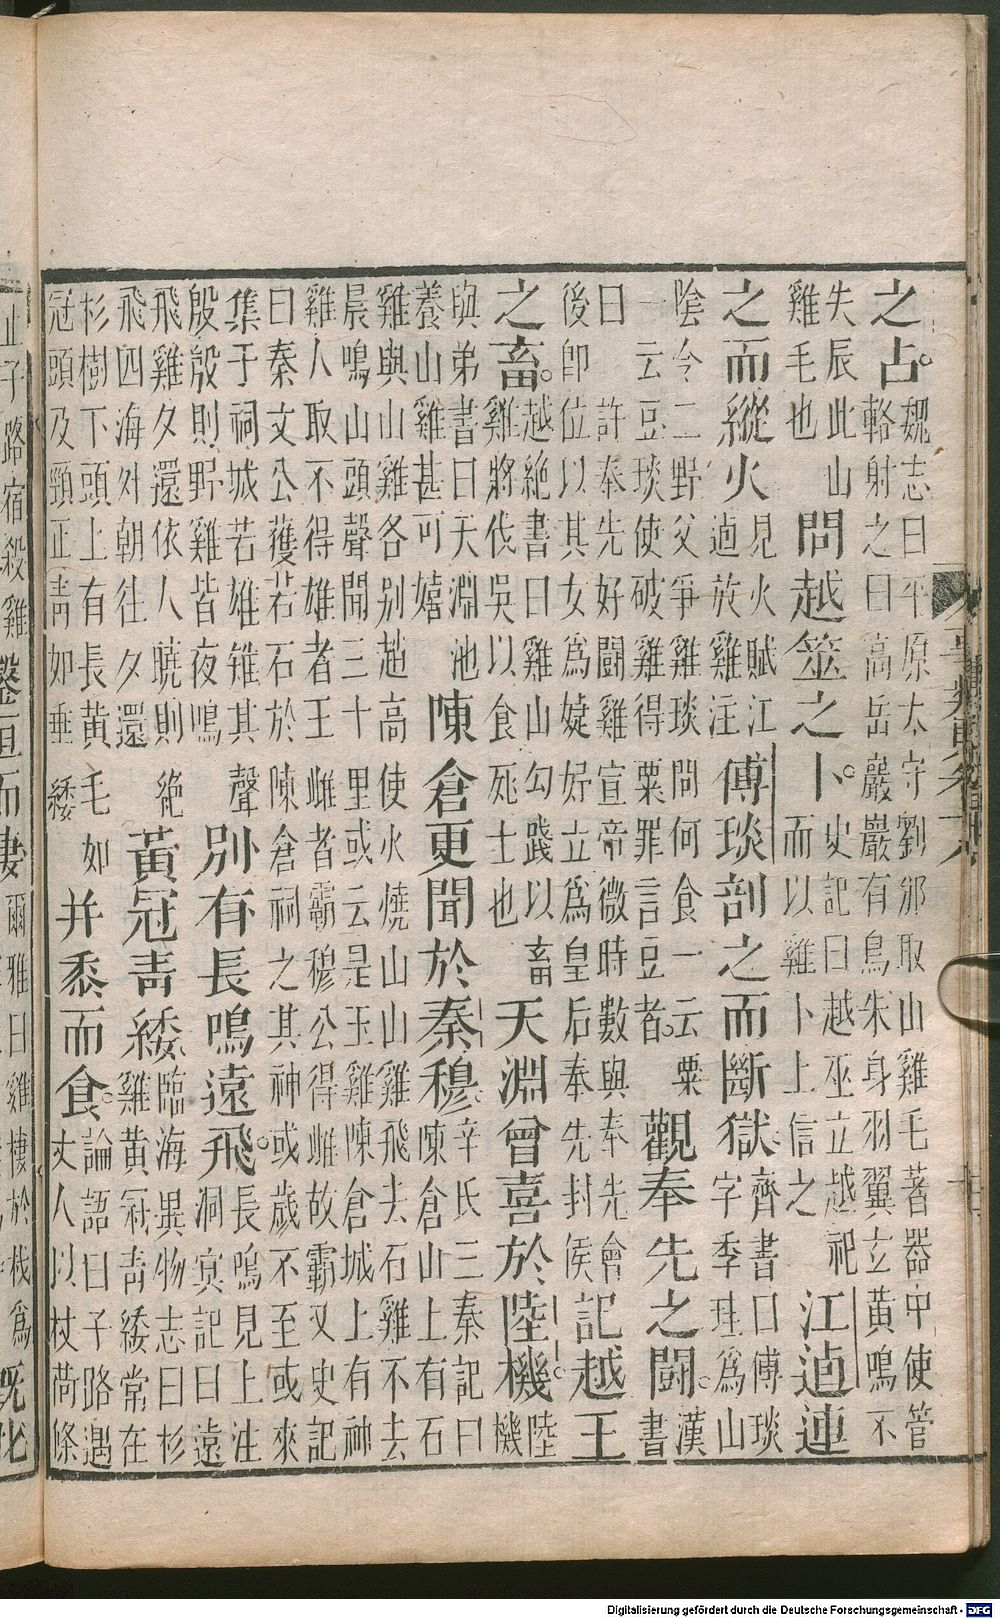 之占。魏志曰平原太守劉邠取山雞毛著器中使管
輅射之曰高岳巖巖有鳥朱身羽翼玄黃鳴不
失辰此山
雞毛也
問越筮之卜。史記曰越巫立越祀
而以雞卜上信之
江逌連
之而縱火見火賦江
逌放雞注
傅琰剖之而斷獄齊書曰傅琰
字季珪為山
陰令二野父爭雞琰問何食一云粟
一云豆琰使破雞得粟罪言豆者。
觀奉先之鬪。漢
書
曰許奉先好闘雞宣帝微時數與奉先會
後卽位以其女為婕妤立為皇后奉先封侯
記越王
之畜。越絶書曰雞山勾踐以畜
雞將伐吳以食死士也
天淵曾喜於陸機。陸
機
與弟書曰天淵池
養山雞甚可嬉
陳倉更聞於秦穆辛氏三秦記曰
陳倉山上有石
雞與山雞各别趙高使火燒山山雞飛去石雞不去
晨鳴山頭聲聞三十里或云是玉雞陳倉城上有神
雞人取不得雄者王雌者霸穆公得雌故霸又史記
曰秦文公獲若石於陳倉祠之其神或歲不至或來
集于祠城若雄雉其聲
殷殷則野雞皆夜鳴
别有長鳴遠飛。長鳴見上注
洞㝠記曰遠
飛雞夕還依人曉則絶
飛四海外朝往夕還
黃冠靑緌臨海異物志曰杉
雞黃冠靑緌常在
杉樹下頭上有長黃毛如
冠頭及頸正靑如垂緌
并黍而食。論語曰子路遇
丈人以杖荷篠
止子路宿殺雞
爾雅曰雞棲於栈為
Digitalisierung gefördert durch die Deutsche Forschungsgemeinschaft - DFG